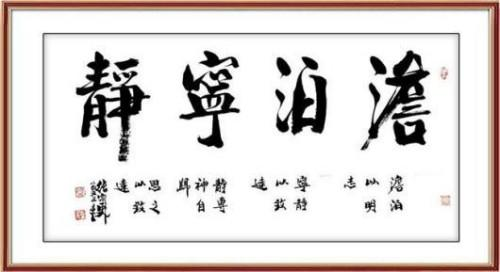 澹泊寧靜
澹泊
以明
志
寧靜
以致
遠
靜專
神自
歸
思之
以致
遠